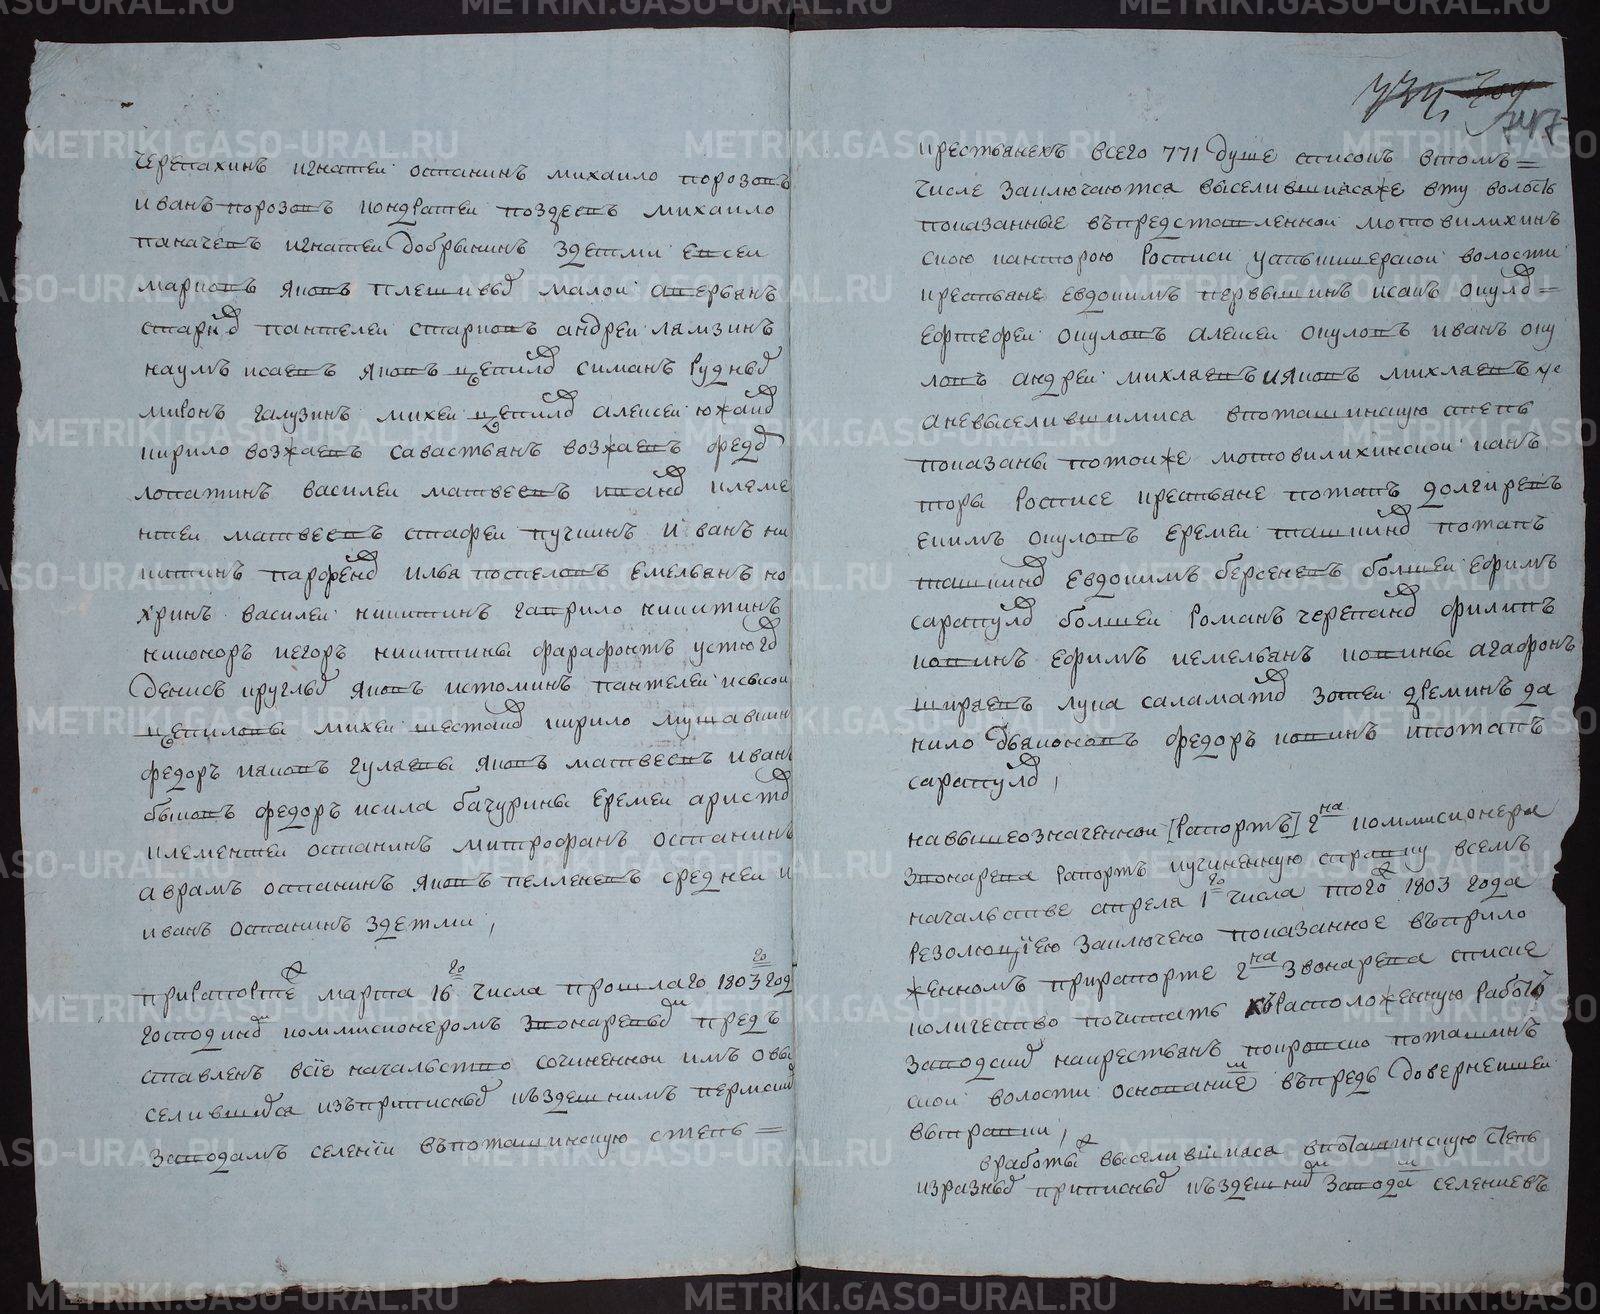 черепахинъ игнатеи останинъ михаило порозовъ
иванъ порозовъ кондратеи поздеевъ михаило
ткачевъ игнатеи добрынинъ здетми евсеи
марковъ яковъ плешивых малои аверьянъ
пантелеи старковъ андреи лямзинъ
наумъ исаевъ яковъ симанъ рудных
миронъ галузинъ михеи алексеи южаков
кирило возжаевъ савастьянъ возжаевъ федор
лопатинъ василеи матвеевъ клеме
нтеи матвеевъ стафеи пучкинъ иванъ ни
китинъ парфенов илья поспеловъ емельянъ ко
хринъ василеи никитинъ гаврило никитинъ
никоноръ иегоръ никитины фарафонтъ устюгов
денисъ круглых яковъ истоминъ пантелеи
щепиловы михеи шестаков кирило мушавкин
федоръ иаковъ гулаевы яковъ матвеевъ иван
быковъ федоръ исила бачурины еремеи аристов
клементеи останинъ митрофанъ останинъ
аврамъ останинъ яковъ пелленевъ среднеи и
иванъ останинъ здетми,
прирапорте марта 16го числа прошлаго 1803го год
господином коммисионеромъ звонаревым предъ
ставленъ всїе начальство сочиненнои имъ овы
селившихся изъприписных къздешнимъ пермским
заводамъ селенїи въпоташинскую степь =
крестьянехъ всего 771 душе списокъ втомъ=
числе заключаются выселившиясяже вту волость
показанные въпредставленнои мотовилихинъ
скою канторою росписи уаткинскои волости
крестьяне евдокимъ первышинъ исакъ окулов=
ефтефеи окуловъ алексеи окуловъ иванъ оку
ловъ андреи михлаевъ ияковъ михлаевъ же
аневыселившимися впоташинскую степь
показаны потоиже мотовилихинскои канъ
торы росписе крестьяне потапъ долгиревъ
екимъ окуловъ еремеи ташкинов потапъ
ташкинов евдокимъ берсеневъ болшеи ефимъ
сарапулов болшеи романъ черепанов филипъ
ковинъ ефимъ иемельянъ ковины агафонъ
шираевъ лука саламатов зотеи дреминъ да
нило дьяконовъ федоръ ковинъ ипотапъ
сарапулов,
навышеозначеннои [рапортъ] гна коммисионера
звонарева рапортъ иучиненную справку всемъ
начальстве апреля 1го числа того 1803 года
резолюцїею заключено показанное въприло
женномъ прирапорте гна звонарева списке
количество почитать къ расположенную работу
заводских накрестьянъ покровско поташинъ
скои волости основанием въпредь довернейшеи
выправки,
вработы выселившияся впоташинскую степь
изразных приписных къздешним заводам селениевъ